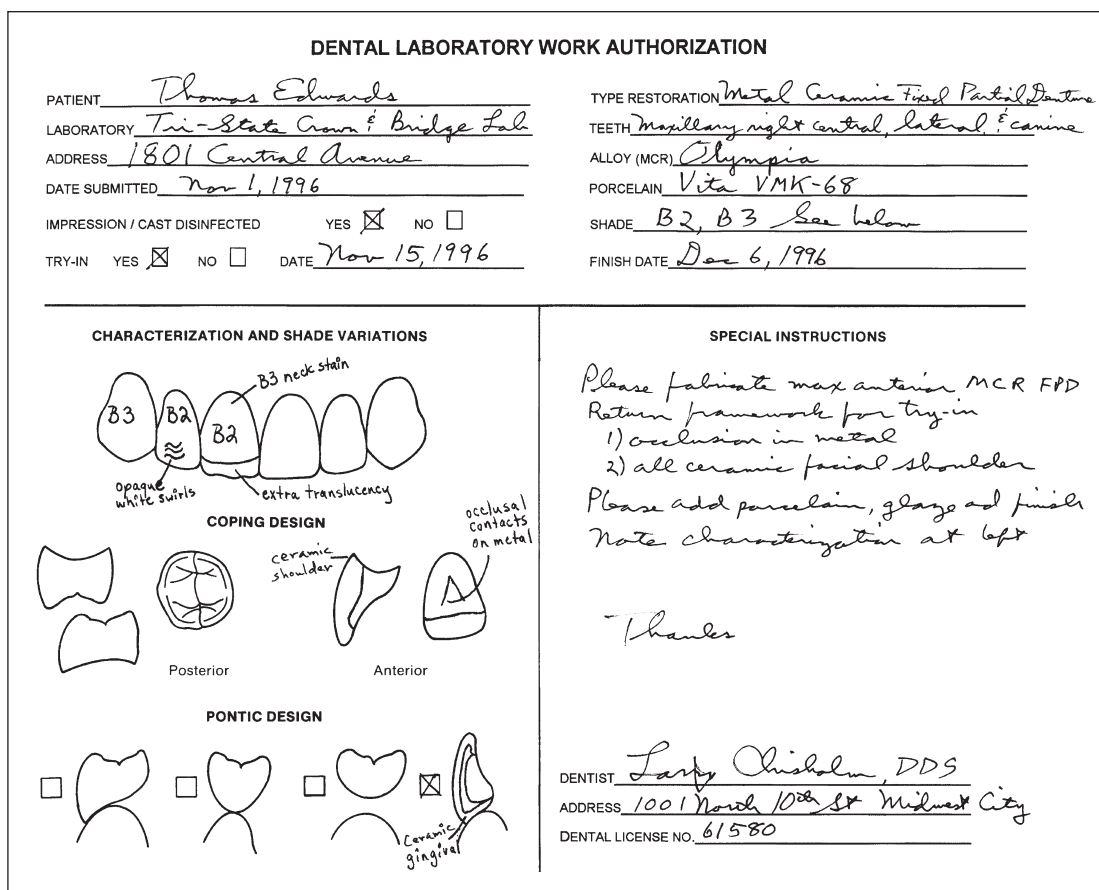 DENTAL LABORATORY WORK AUTHORIZATION
PATIENT Thomas Edwards
LABORATORY Tri-State Crown & Bridge Lab
ADDRESS 1801 Central Avenue
DATE SUBMITTED Nov 1, 1996
IMPRESSION / CAST DISINFECTED YES ☒ NO ☐
TRY-IN YES ☒ NO ☐ DATE Nov 15, 1996
TYPE RESTORATION Metal Ceramic Fixed Partial Denture
TEETH Maxillary right central, lateral, & canine
ALLOY (MCR) Olympia
PORCELAIN Vita VMK-68
SHADE B2, B3 See below
FINISH DATE Dec 6, 1996
CHARACTERIZATION AND SHADE VARIATIONS
B3 neck stain
B3 B2 B2
opaque
white swirls
extra translucency
COPING DESIGN
ceramic
shoulder
occlusal
contacts
on metal
Posterior
Anterior
PONTIC DESIGN
Ceramic
gingival
SPECIAL INSTRUCTIONS
Please fabricate max anterior MCR FPD
Return framework for try-in
1) occlusion in metal
2) all ceramic facial shoulder
Please add porcelain, glaze ad finish
Note characterization at left
Thanks
DENTIST Larry Chisholm, DDS
ADDRESS 1001 North 10th St Midwest City
DENTAL LICENSE NO. 61580